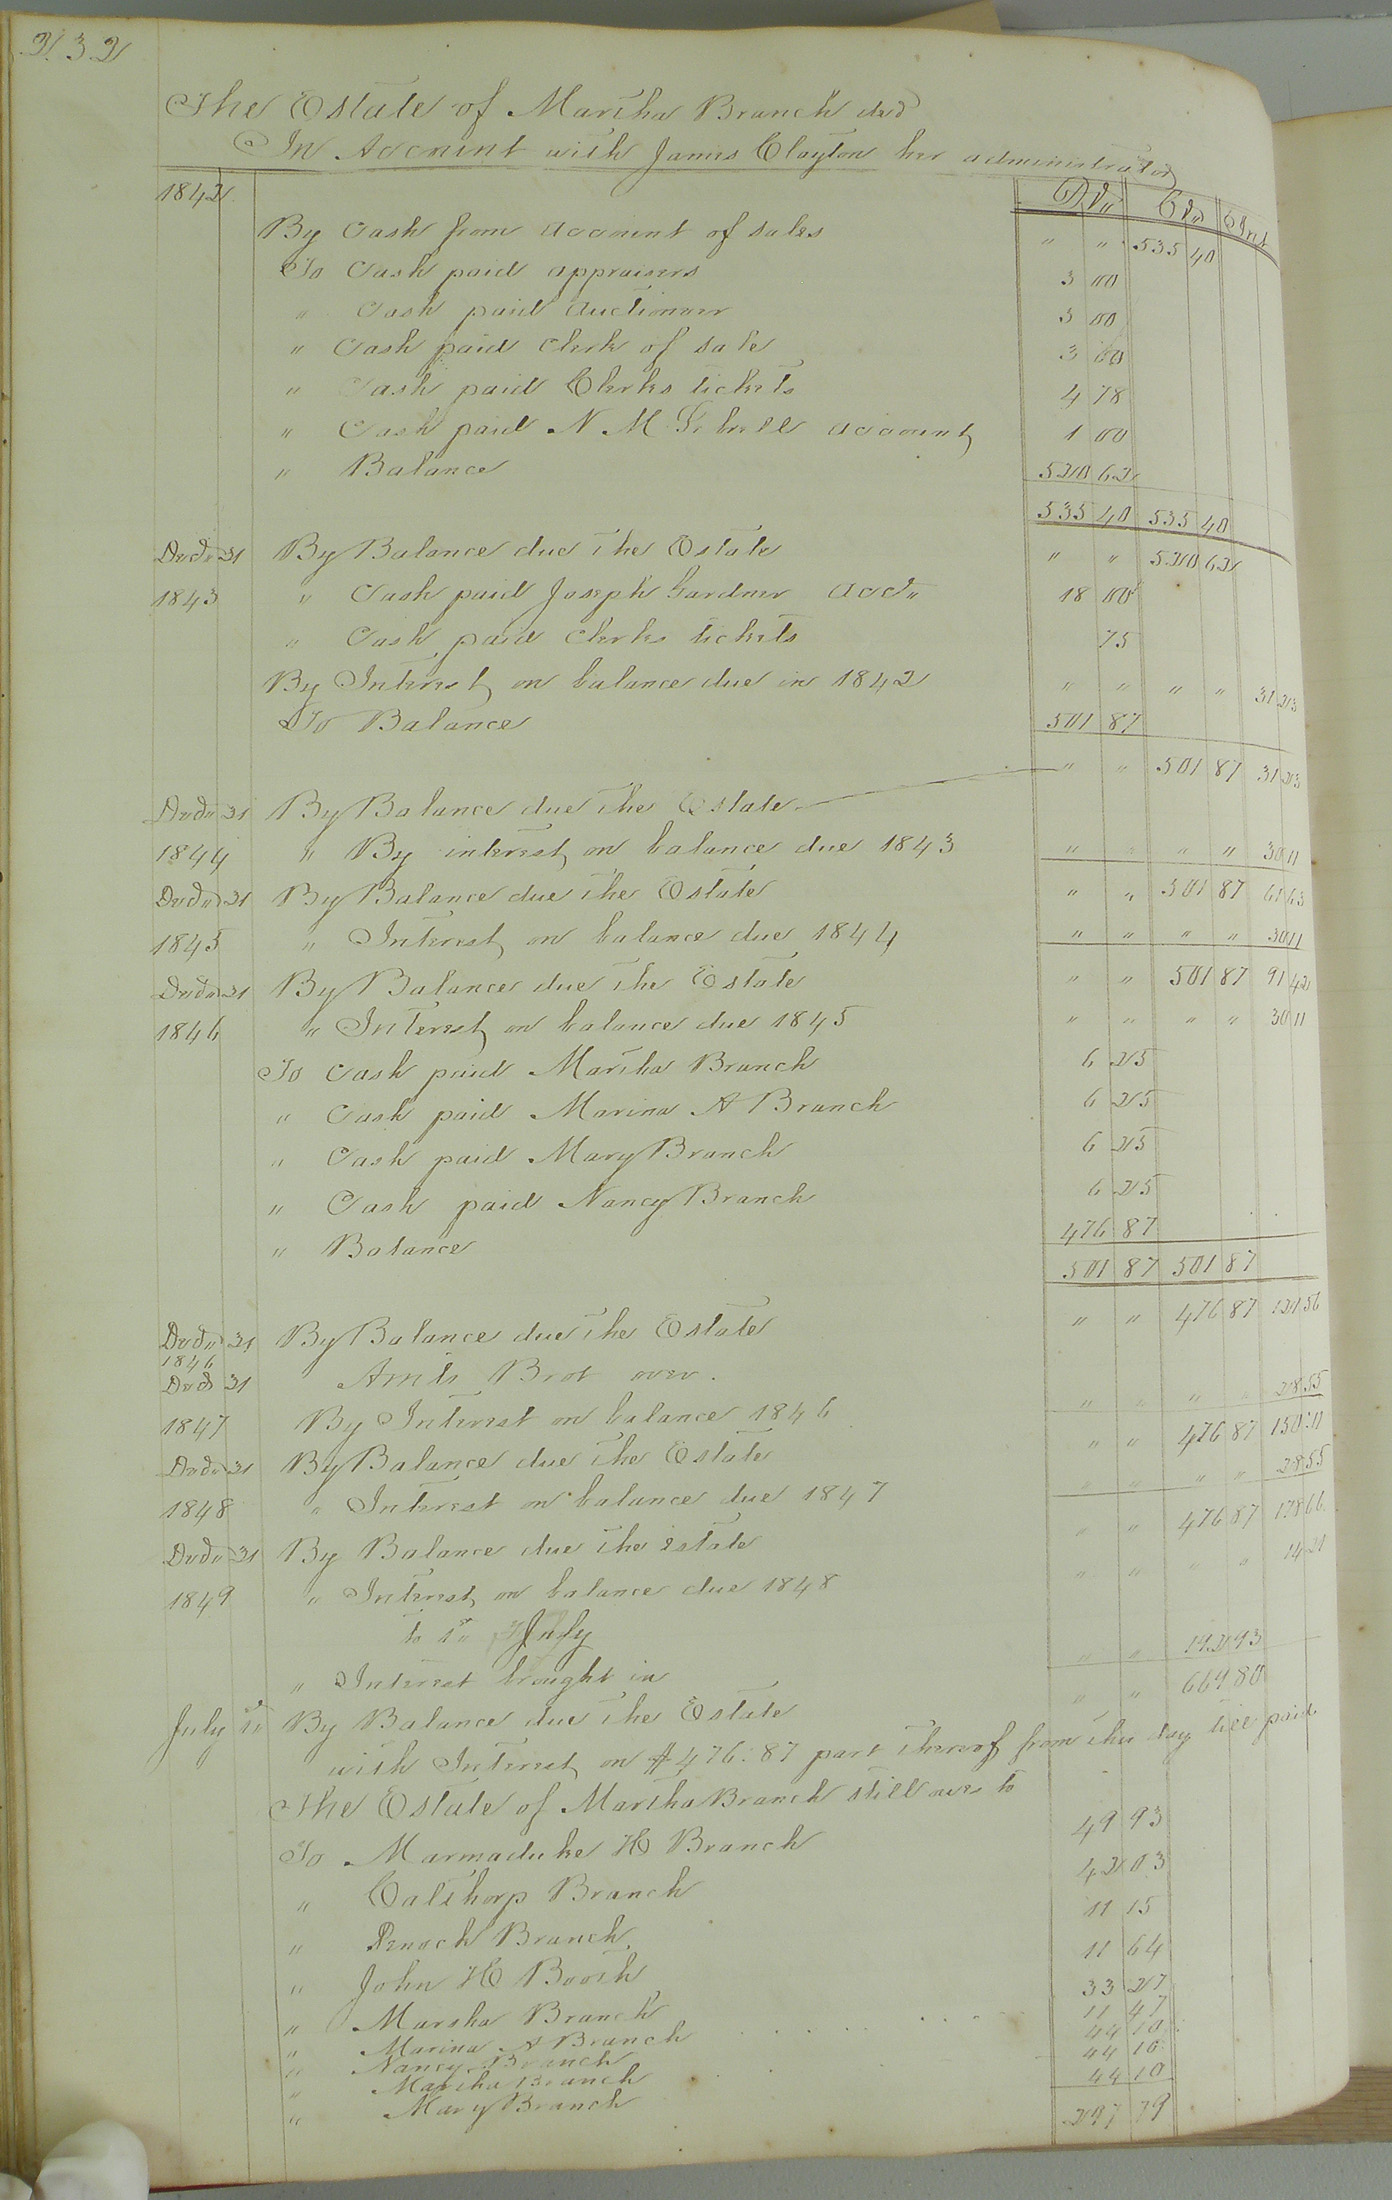 232
The Estate of Martha Branch decd
In Account with James Clayton her administrator
1842 Dr Cr Int
By Cash from account of sales " " 535 40
To Cash paid appraisers 3 00
" Cash paid auctioneer 3 00
" Cash paid clerk of sale 3 00
" Cash paid Clerks tickets 4 78
" Cash paid N M account 1 00
" Balance 520 62
535 40 535 40
Decr 31 By Balance due the Estate " " 520 62
1843 " Cash paid Joseph Gardner acct 18 00
" Cash paid clerks tickets 75
By Interest on balance due in 1842 " " " " 31 23
To Balance 501 87
Decr 31 By Balance due the Estate " " 501 87 31 23
1844 " By interest on balance due 1843 " " " " 30 11
Decr 31 By Balance due the Estate " " 501 87 61 63
1845 " Interest on balance due 1844 " " " " 30 11
Decr 31 By Balance due the Estate " " 501 87 91 42
1846 " Interest on balance due 1845 " " " " 30 11
To Cash paid Martha Branch 6 25
" Cash paid Marina A Branch 6 25
" Cash paid Mary Branch 6 25
" Cash paid Nancy Branch 6 25
" Balance 476 87
501 87 501 87
Decr 31 By Balance due the Estate " " 476 87 121 56
1846
Decr 31 Amts Brot over.
1847 By Interest on balance 1846 " " " " 28 55
Decr 31 By Balance due the Estate " " 476 87 150 11
1848 " Interest on balance due 1847 " " " " 28 55
Decr 31 By Balance due the estate " " 476 87 178 66
1849 " Interest on balance due 1848 " " " " 14 21
to 1st July
" Interest brought in " " 192 93
July 1st By Balance due the Estate " " 669 80
with Interest on $476.87 part thereof from this day till paid
The Estate of Martha Branch still owes to
To Marmaduke H Branch 49 93
" Calthorp Branch 42 03
" Enoch Branch 11 15
" John H Booth 11 64
" Marsha Branch 33 27
" Marina A Branch 11 47
" Nancy Branch 44 10
" Martha Branch 44 10
" Mary Branch 44 10
297 79